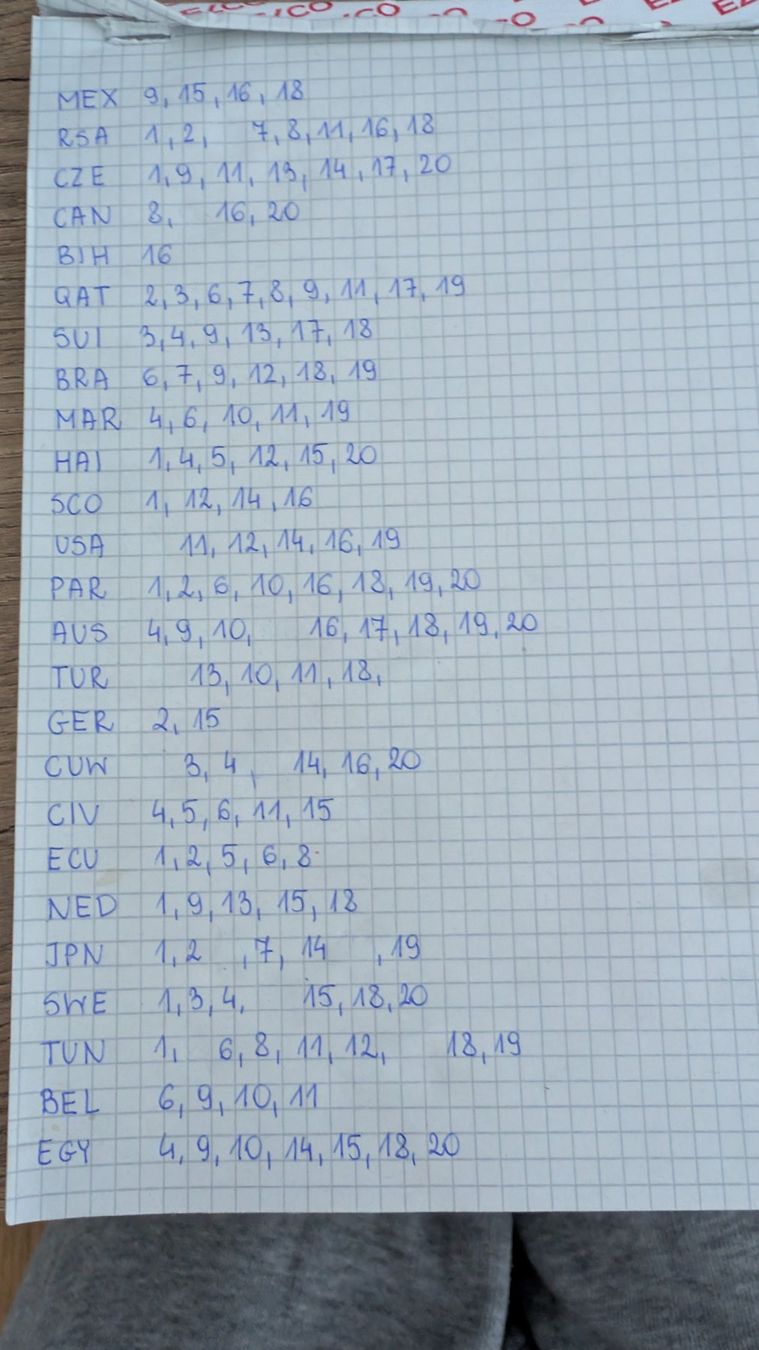 MEX 9, 15, 16, 18
RSA 1, 2, 7, 8, 11, 16, 18
CZE 1, 9, 11, 13, 14, 17, 20
CAN 8, 16, 20
BIH 16
QAT 2, 3, 6, 7, 8, 9, 11, 17, 19
SUI 3, 4, 9, 13, 17, 18
BRA 6, 7, 9, 12, 18, 19
MAR 4, 6, 10, 11, 19
HAI 1, 4, 5, 12, 15, 20
SCO 1, 12, 14, 16
USA 11, 12, 14, 16, 19
PAR 1, 2, 6, 10, 16, 18, 19, 20
AUS 4, 9, 10, 16, 17, 18, 19, 20
TUR 13, 10, 11, 18,
GER 2, 15
CUW 3, 4, 14, 16, 20
CIV 4, 5, 6, 11, 15
ECU 1, 2, 5, 6, 8
NED 1, 9, 13, 15, 18
JPN 1, 2 , 7, 14 , 19
SWE 1, 3, 4, 15, 18, 20
TUN 1, 6, 8, 11, 12, 18, 19
BEL 6, 9, 10, 11
EGY 4, 9, 10, 14, 15, 18, 20